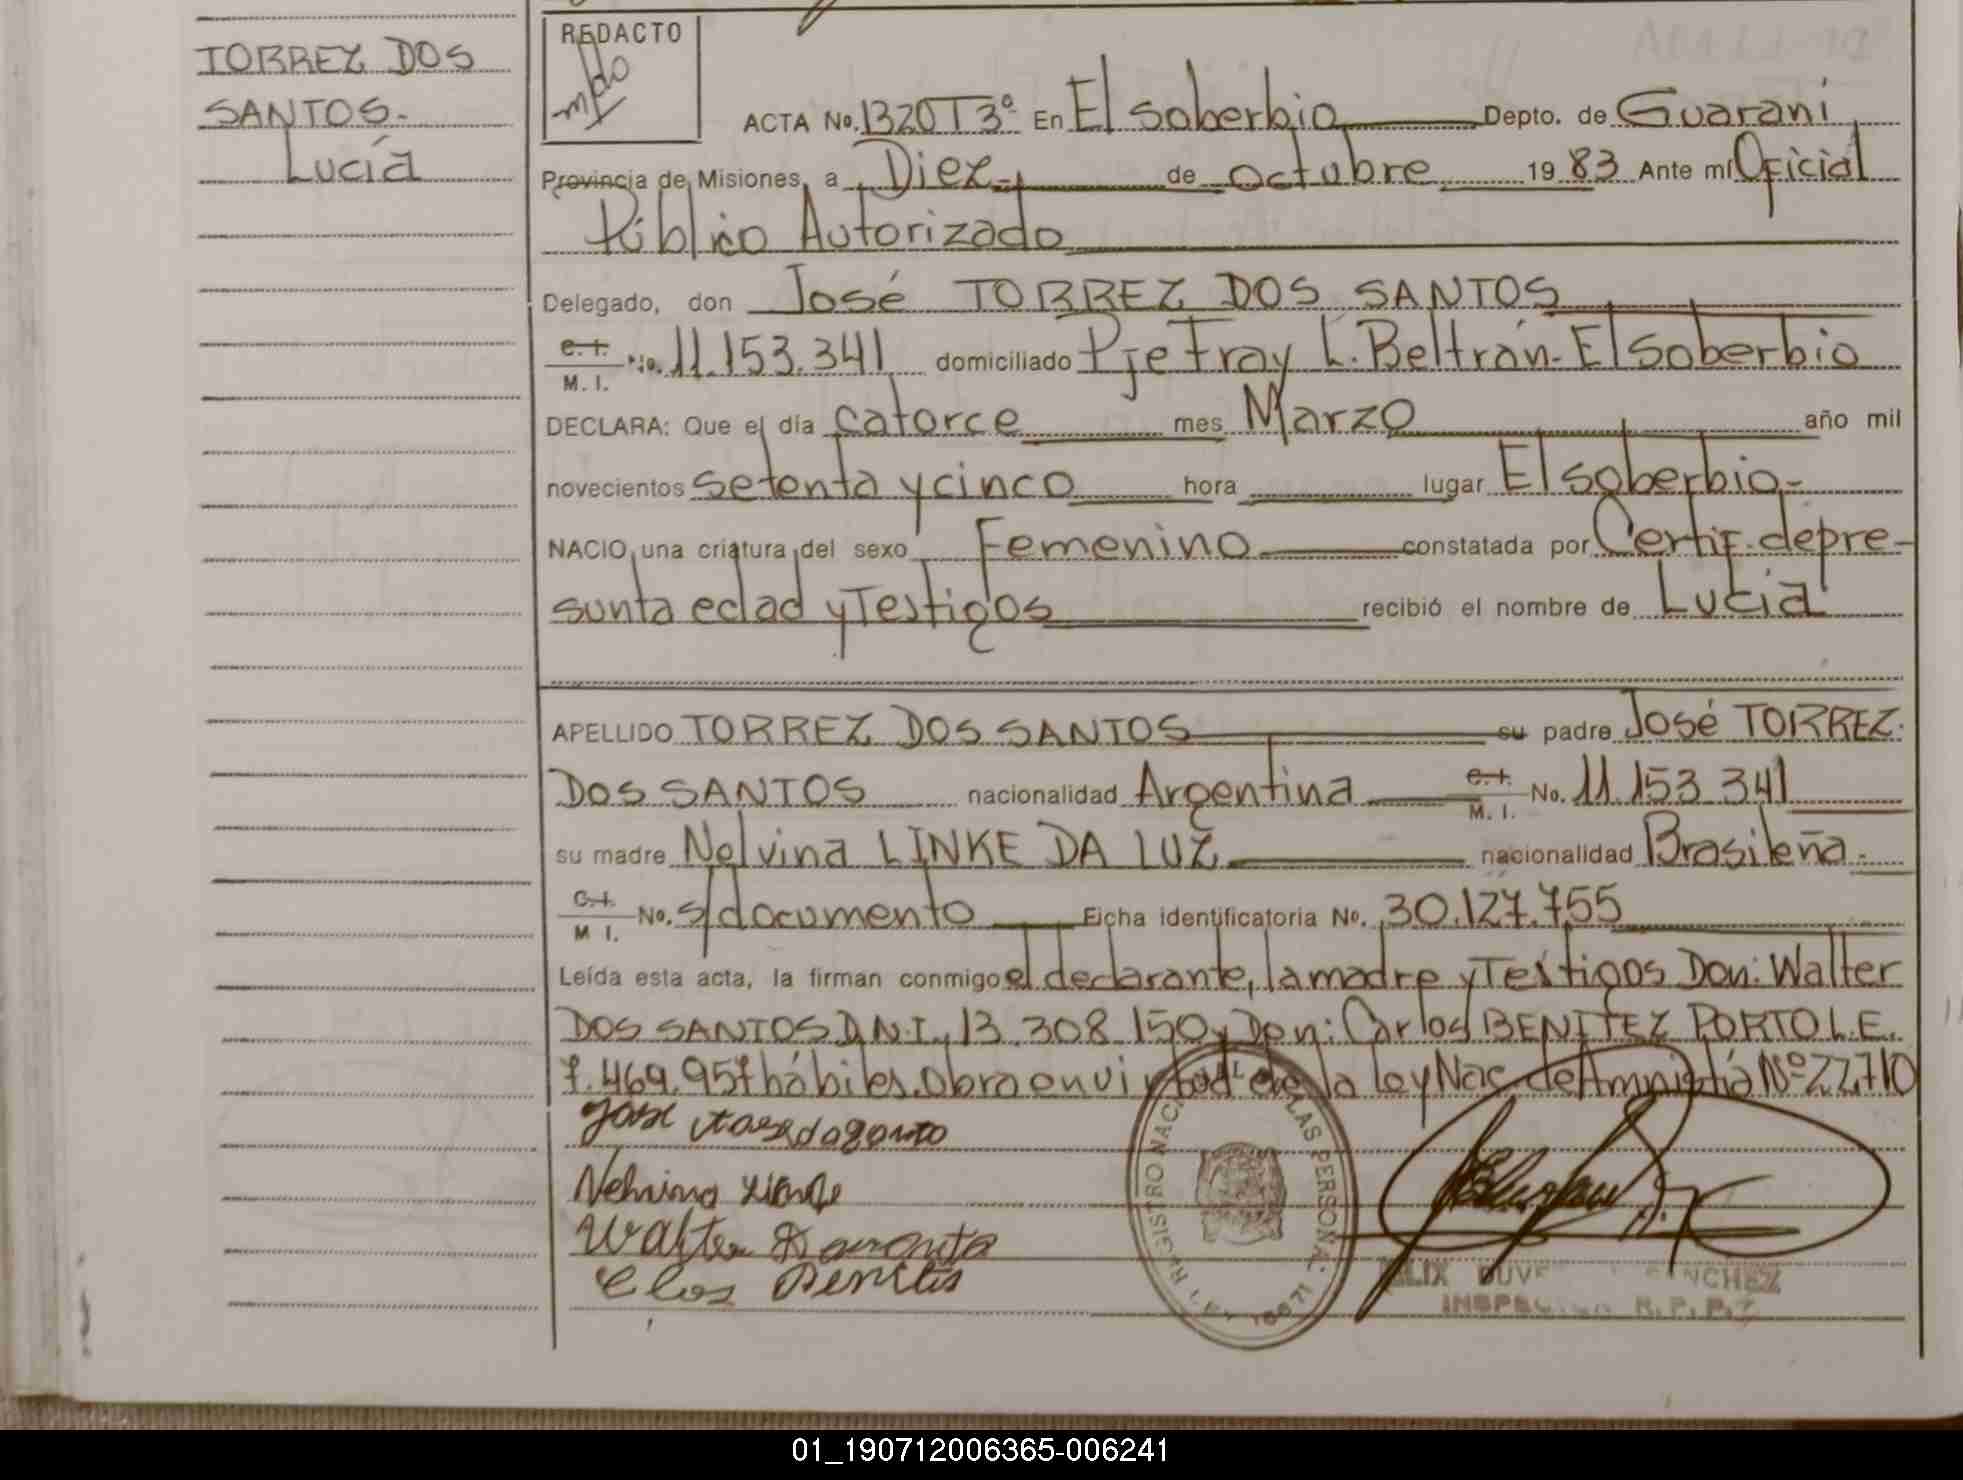 TORREZ DOS
SANTOS.-
Lucía
REDACTO
ACTA No. 1320 T3º En El soberbio Depto. de Guaraní
Provincia de Misiones, a Diez.- de octubre 1983 Ante mí Oficial
Público Autorizado
Delegado, don José TORREZ DOS SANTOS
C.I. M.I. No. 11.153.341 domiciliado Pje Fray L. Beltrán.- El soberbio
DECLARA: Que el día catorce mes Marzo año mil
novecientos setenta y cinco hora lugar El soberbio.-
NACIO una criatura del sexo Femenino constatada por Certif. de pre-
sunta edad y Testigos recibió el nombre de Lucía
APELLIDO TORREZ DOS SANTOS su padre José TORREZ
DOS SANTOS nacionalidad Argentina C.I. M.I. No. 11.153.341
su madre Nelvina LINKE DA LUZ nacionalidad Brasileña.-
C.I. M I. No. s/documento Ficha identificatoria No. 30.127.755
Leída esta acta, la firman conmigo el declarante, la madre y Testigos Don: Walter
DOS SANTOS D.N.I. 13.308.150 y Don: Carlos BENITEZ PORTO L.E.
7.469.957 hábiles. Obra en virtud de la ley Nac. de Amnistía Nº 22.710
Nelvina Linke
Walter
REGISTRO NAC DE LAS PERSONAS
SANCHEZ
R.P.P.
01_190712006365-006241